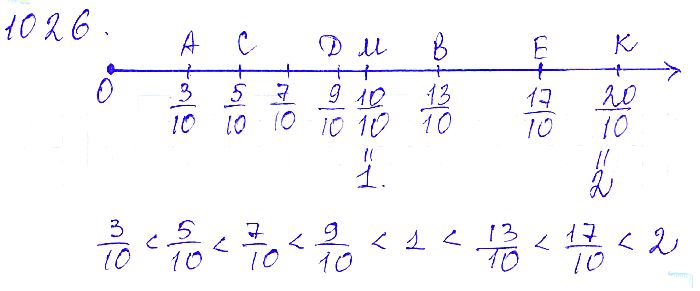 1026.
A C D M B E K
O 3/10 5/10 7/10 9/10 10/10 13/10 17/10 20/10
" "
1. 2
3/10 < 5/10 < 7/10 < 9/10 < 1 < 13/10 < 17/10 < 2